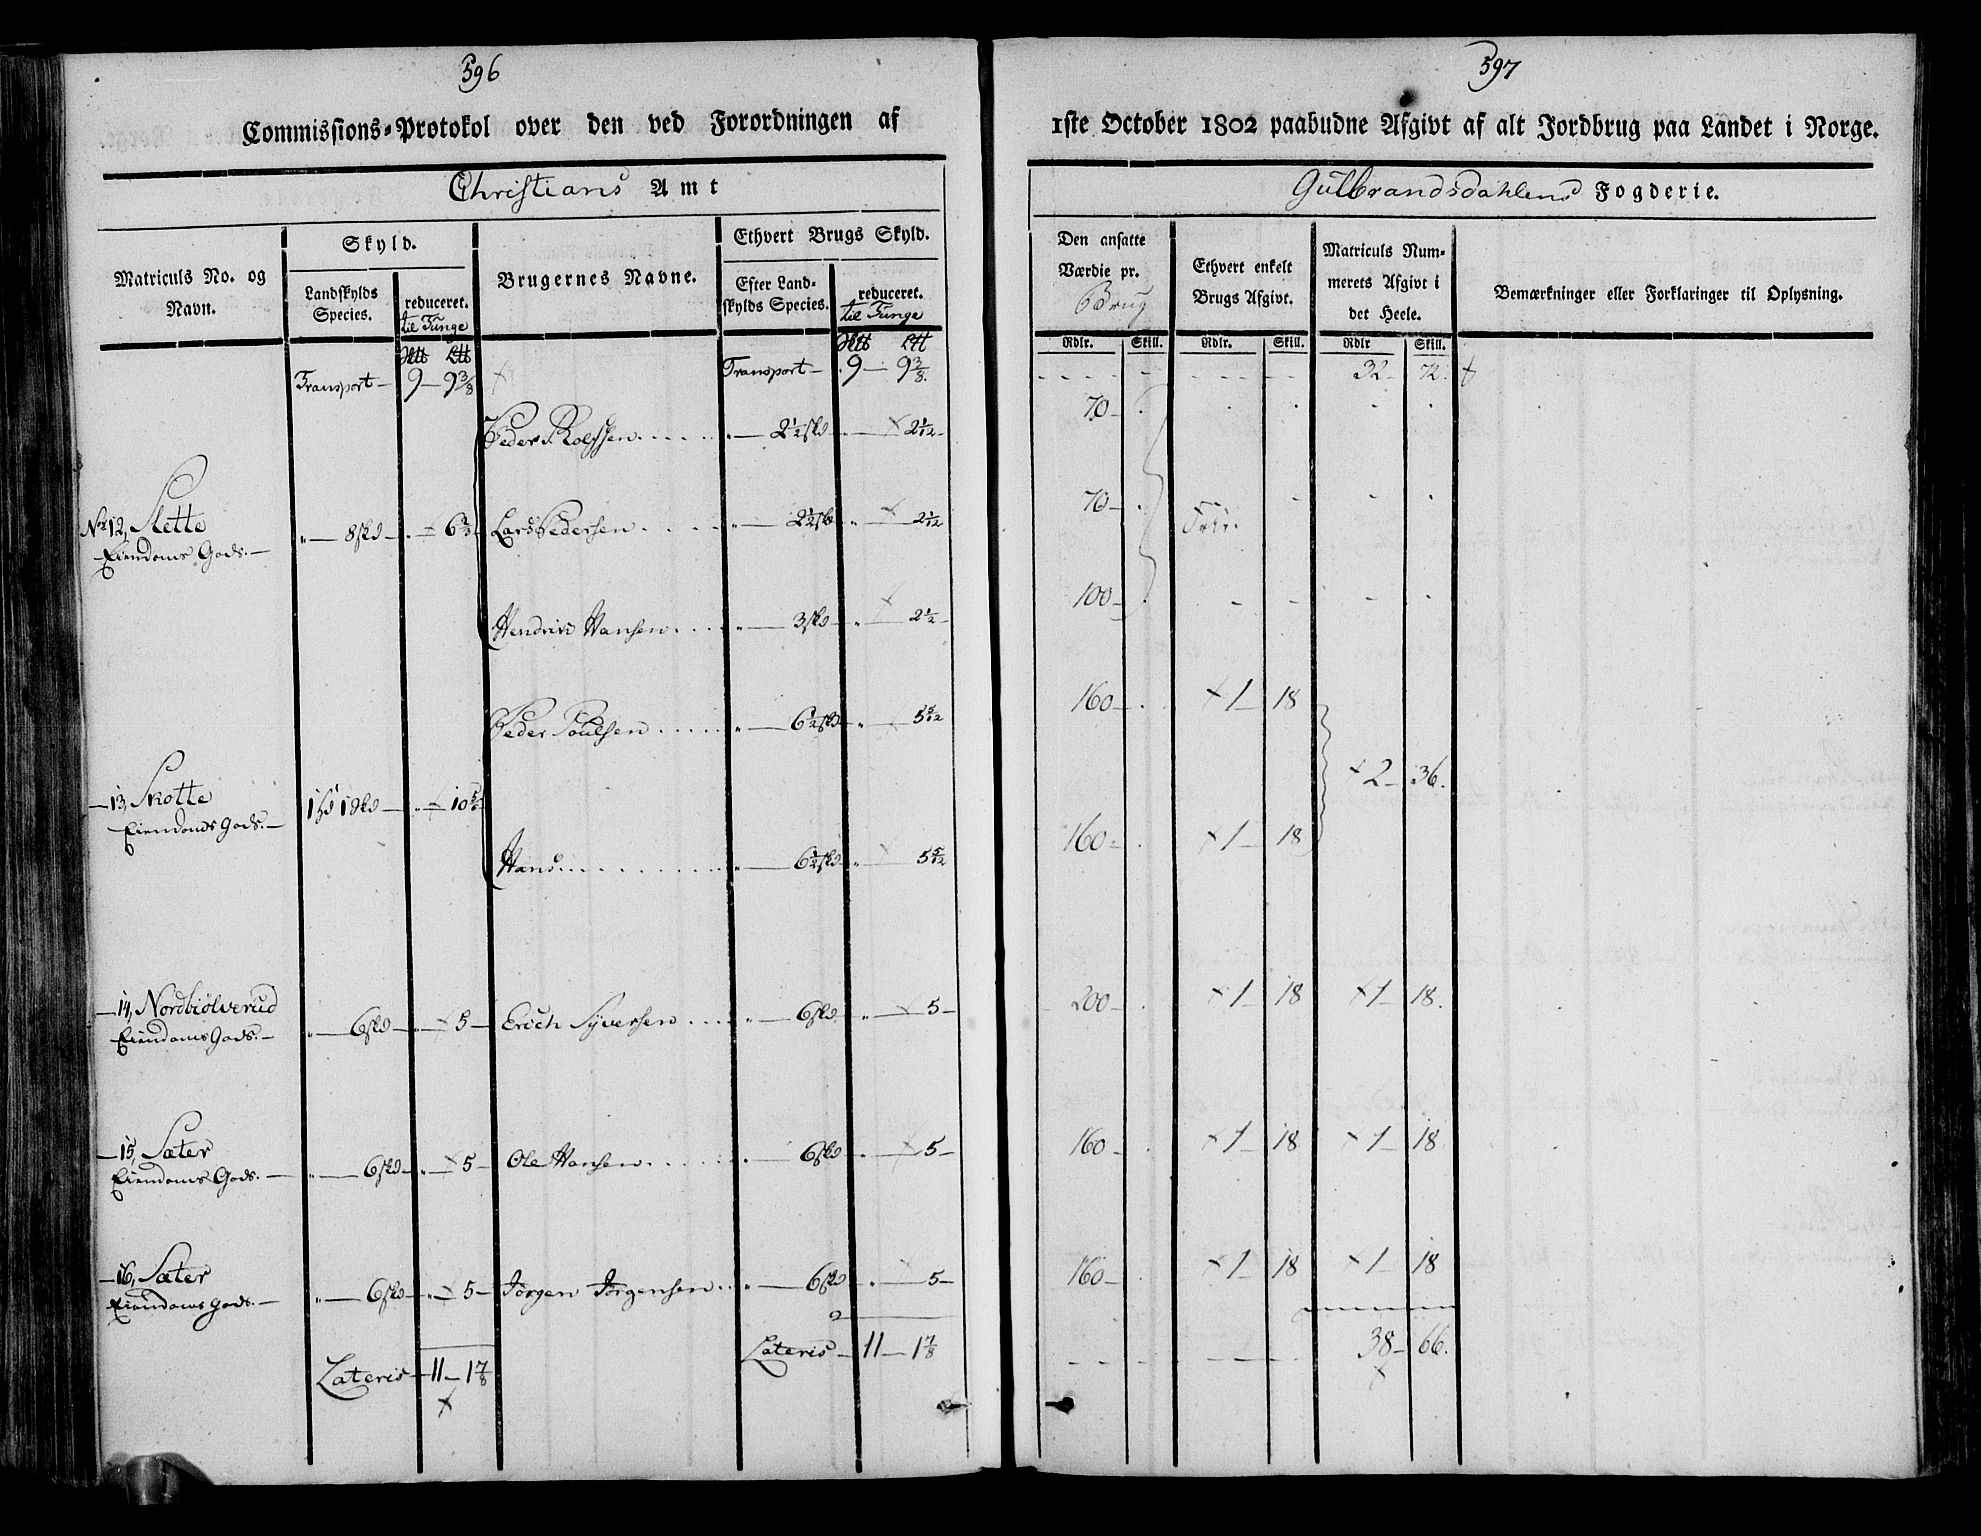 596
Commissions-Protokol over den ved Forordningen af
Christians Amt
Matriculs No. og Navn.
Skyld.
Landskylds Species.
reduceret. til Tunge
Brugernes Navne.
Ethvert Brugs Skyld.
Efter Landskylds Species.
reduceret. til Tunge
Transport — 9 — 9 3/8
Transport — 9 — 9 3/8.
Peder Rolfssen . . . . . „ — 2 1/2 skd — 2 1/12
No 12, Slette „ — 8 skd — 6 2/3 Lars Pedersen . . . . „ — 2 1/2 skd „ — 2 1/12
Eiendoms Gods. —
Hendrich Hansen . . . „ — 3 skd „ — 2 1/2
Peder Poulsen . . . . . „ — 6 1/2 skd „ 5 5/12
— 13, Skotte 1 hd 1 skd — „ — 10 5/6
Eiendoms Gods. —
Hans . . . . . . . . . „ — 6 1/2 skd „ — 5 5/12
— 14, Nordbiølverud „ — 6 skd — „ — 5 — Erich Syversen . . . „ — 6 skd „ — 5 —
Eiendoms Gods. —
— 15, Sæter „ — 6 skd — „ — 5 — Ole Hansen . . . . . „ — 6 skd „ — 5 —
Eiendoms Gods. —
— 16, Sæter „ — 6 skd — „ — 5 — Jørgen Jørgensen . . „ — 6 skd „ — 5 —
Eiendoms Gods. —
Lateris — 11 — 1 7/8
Lateris — 11 — 1 7/8
597
1ste October 1802 paabudne Afgivt af alt Jordbrug paa Landet i Norge.
Gulbrandsdahlens Fogderie.
Den ansatte Værdie pr. Brug
Ethvert enkelt Brugs Afgivt.
Matriculs Nummerets Afgivt i det Heele.
Bemærkninger eller Forklaringer til Oplysning.
Rdlr. Skill. Rdlr. Skill. Rdlr Skill.
32 — 72.
70 —
70 — Frie.
100 —
160 — 1 — 18
2 — 36.
160 — 1 — 18
200 — 1 — 18 1 — 18.
160 — 1 — 18 1 — 18
160 — 1 — 18 1 — 18
38 — 66.